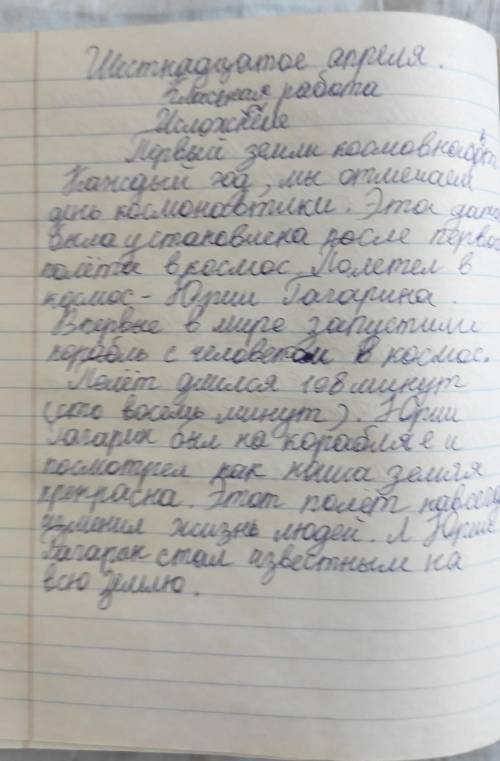 Шестнадцатое апреля.
Класная работа
Изложение
Первый земли
Каждый год, мы отмечаем
день космонавтики. Эта дата
была установлена после первого
полёта в космос. Полетел в
космос - Юрии Гагарина.
Впервые в мире запустили
корабль с человеком в космос.
Полёт длился 108 минут
(сто восемь минут). Юрии
Гагарин был на корабляе и
посмотрел как наша земля
прекрасна. Этот полёт навсегда
изменил жизнь людей. А Юрии
Гагарин стал известным на
всю землю.